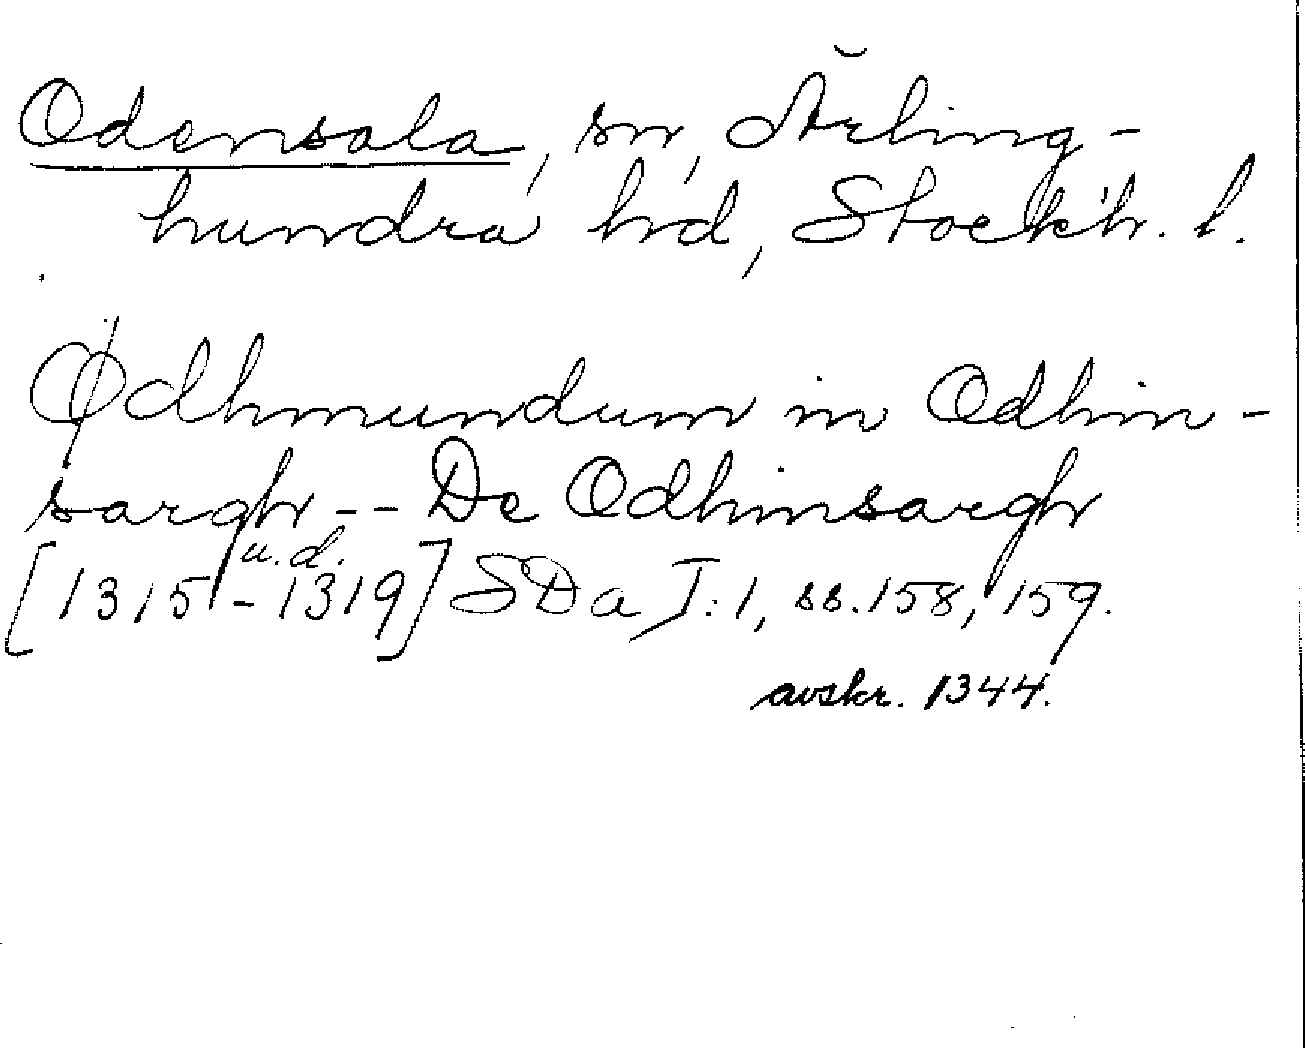 Odensala, sn, Ärling-
hundra hd, Stockh. l.
Ødhmundum in Odhin-
sargh -- De Odhinsargh
u.d.
[1315-1319] SDa I:1, ss.158, 159.
avskr. 1344.